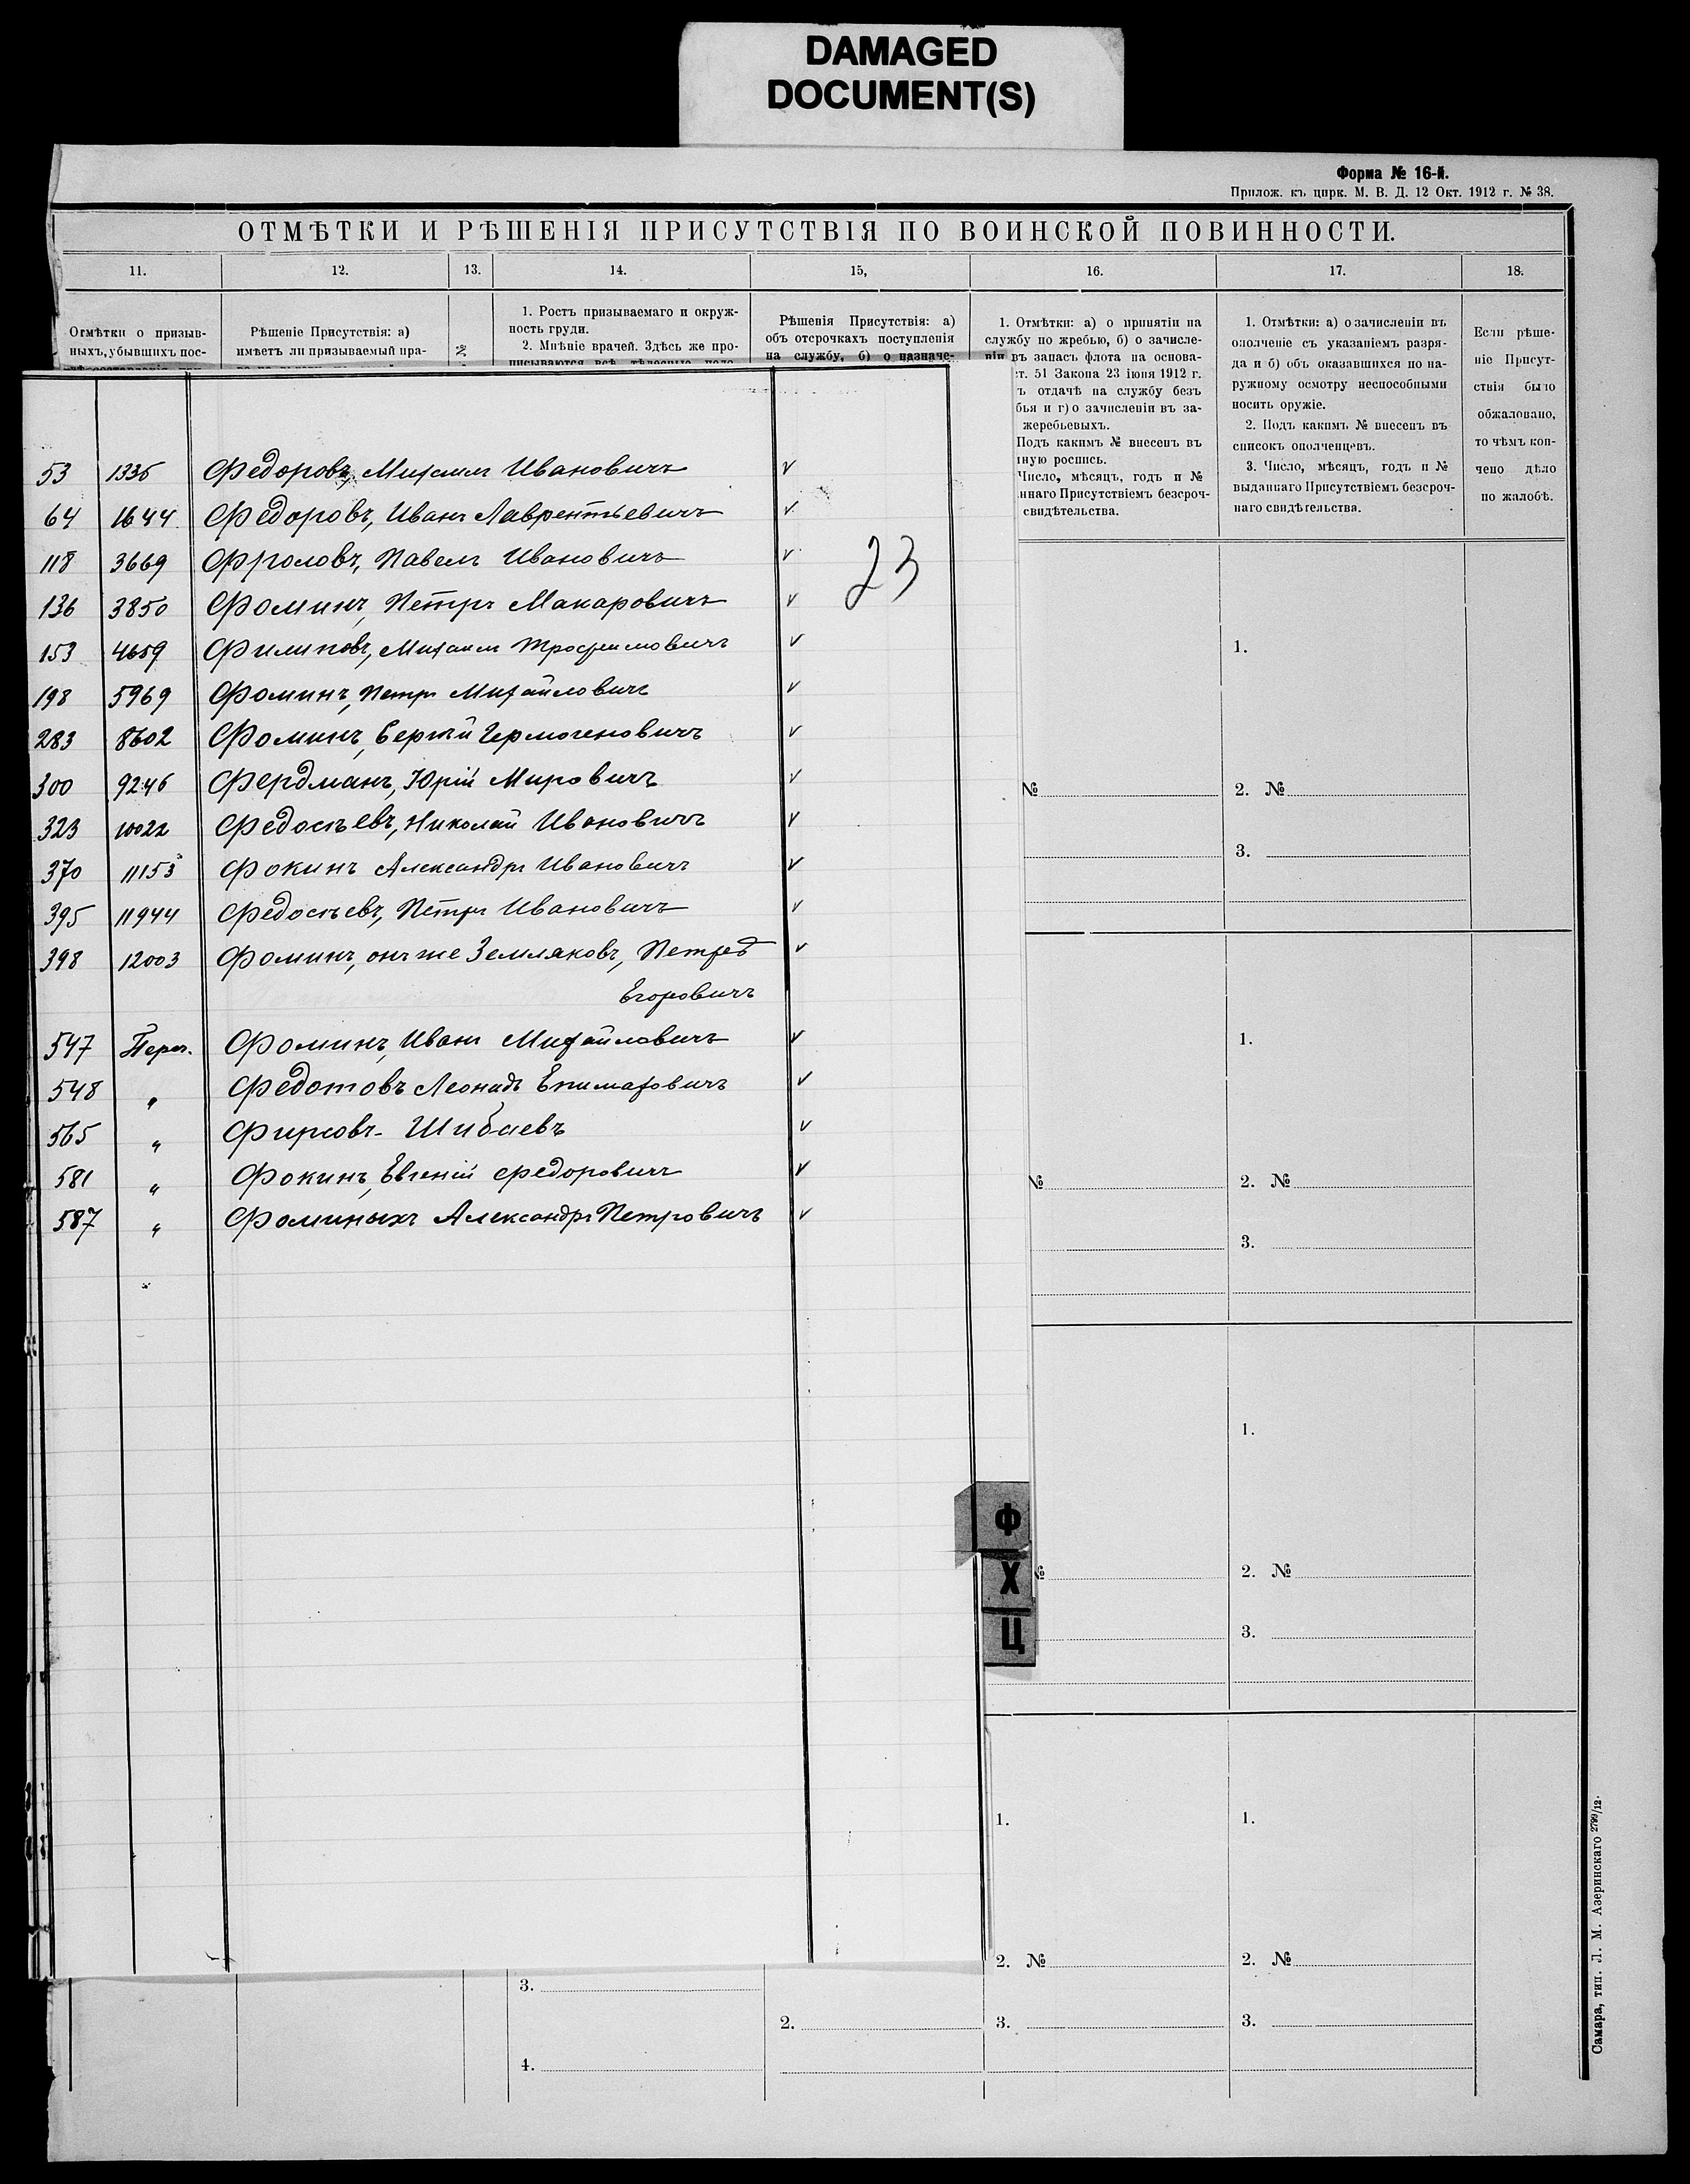 DAMAGED
DOCUMENT(S)
Форма № 16-й.
Прилож. къ цирк. М. В. Д. 12 Окт. 1912 г. № 38.
ОТМѢТКИ И РѢШЕНІЯ ПРИСУТСТВІЯ ПО ВОИНСКОЙ ПОВИННОСТИ.
11. 12. 13. 14. 15, 16. 17. 18.
Отмѣтки о призыв-
ныхъ, убывшихъ пос-
Рѣшеніе Присутствія: а)
имѣетъ ли призываемый пра-
№
1. Ростъ призываемаго и окруж-
ность груди.
2. Мнѣніе врачей. Здѣсь же про-
писываются всѣ тѣлесные недо-
Рѣшенія Присутствія: а)
объ отсрочкахъ поступленія
на службу, б) о назначе-
1. Отмѣтки: а) о принятіи на
службу по жребью, б) о зачисле-
ніи въ запасъ флота на основа-
ст. 51 Закона 23 іюня 1912 г.
ъ отдачѣ на службу безъ
бья и г) о зачисленіи въ за-
жеребьевыхъ.
Подъ какимъ № внесенъ въ
ную роспись.
Число, мѣсяцъ, годъ и №
ннаго Присутствіемъ безсроч-
свидѣтельства.
1. Отмѣтки: а) о зачисленіи въ
ополченіе съ указаніемъ разря-
да и б) объ оказавшихся по на-
ружному осмотру неспособными
носить оружіе.
2. Подъ какимъ № внесенъ въ
списокъ ополченцевъ.
3. Число, мѣсяцъ, годъ и №
выданнаго Присутствіемъ безсроч-
наго свидѣтельства.
Если рѣше-
ніе Присут-
ствія было
обжаловано,
то чѣмъ кон-
чено дѣло
по жалобѣ.
53 1336 Федоровъ, Михаилъ Ивановичъ v
64 1644 Федоровъ, Иванъ Лаврентьевичъ v
118 3669 Фроловъ, Павелъ Ивановичъ v
23
136 3850 Фоминъ, Петръ Макаровичъ v
153 4659 Филиповъ, Михаилъ Трофимовичъ v
198 5969 Фоминъ, Петръ Михайловичъ v
283 8602 Фоминъ, Сергѣй Гермогеновичъ v
300 9246 Фердманъ, Юрій Мировичъ v
323 10022 Федосѣевъ, Николай Ивановичъ v
370 11153 Фокинъ Александръ Ивановичъ v
395 11944 Федосѣевъ, Петръ Ивановичъ v
398 12003 Фоминъ, онъ же Земляковъ, Петръ v
Егоровичъ
547 Переч. Фоминъ, Иванъ Михайловичъ v
548 " Федотовъ Леонидъ Епимаховичъ v
565 " Фирсовъ - Шибаевъ v
581 " Фокинъ, Евгеній Федоровичъ v
587 " Фоминыхъ Александръ Петровичъ v
1.
№ 2. №
3.
1.
№ 2. №
3.
1.
Ф
Х
№ 2. №
Ц
3.
1. 1.
2. № 2. №
3.
2. 3. 3.
4.
Самара, тип. Л. М. Азеринскаго 2799/12.